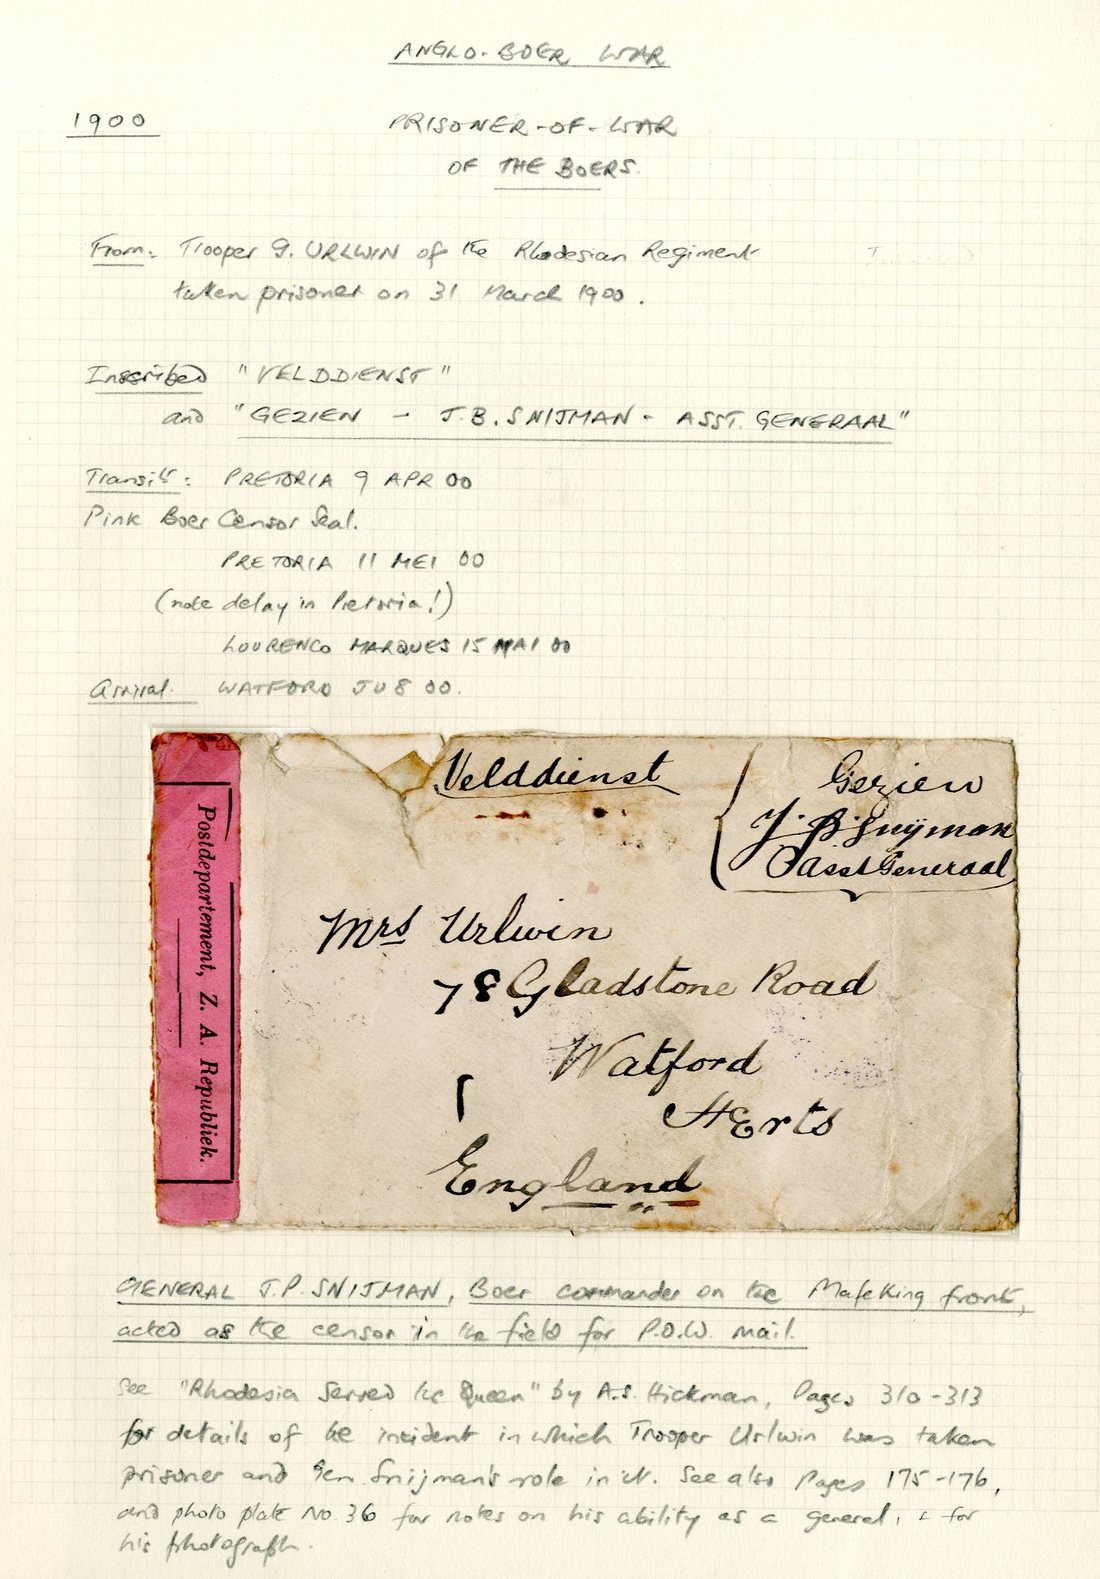 ANGLO-BOER WAR
1900
PRISONER-OF-WAR
OF THE BOERS.
From: Trooper G. URLWIN of the Rhodesian Regiment
taken prisoner on 31 March 1900.
Inscribed "VELDDIENST"
and "GEZIEN - J.B. SNIJMAN - ASST. GENERAAL"
Transit: PRETORIA 9 APR 00
Pink Boer Censor Seal.
PRETORIA 11 MEI 00
(note delay in Pretoria!)
LOURENCO MARQUES 15 MAI 00
Arrival WATFORD JU 8 00.
Velddienst
Gezien
J. B. Snyman
Asst Generaal
Postdepartement, Z. A. Republiek.
Mrs Urlwin
78 Gladstone Road
Watford
Herts
England
GENERAL J.P. SNIJMAN, Boer commander on the Mafeking front,
acted as the censor in the field for P.O.W. mail.
See "Rhodesia Served the Queen" by A.S. Hickman, Pages 310-313
for details of the incident in which Trooper Urlwin was taken
prisoner and Gen Snijman's role in it. See also Pages 175-176,
and photo plate No. 36 for notes on his ability as a general, & for
his photograph.